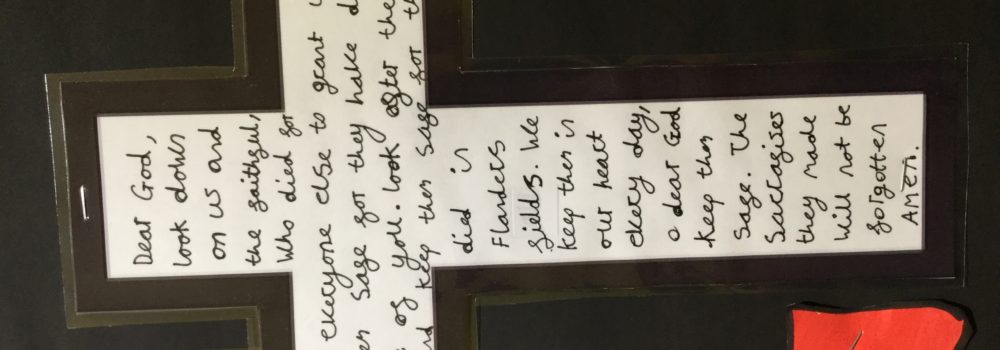 Dear God,
look down
on us and
the faithful,
Who died for
everyone else to grant
safe for they have
of you. look after the
keep them safe for
died in
Flanders
fields. We
keep them in
our heart
every day,
o dear God
keep them
safe. The
Sacrafises
they made
Will not be
forgotten
AMEN.